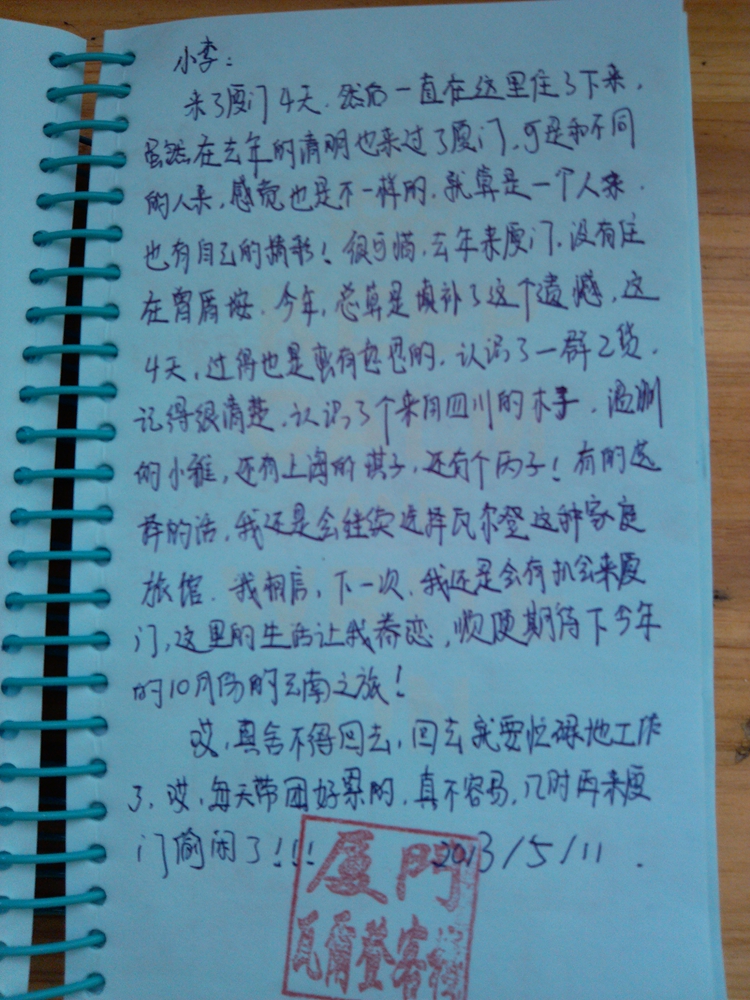 小李：
来了厦门4天，然后一直在这里住了下来，
虽然在去年的清明也来过了厦门，可是和不同
的人来，感觉也是不一样的，就算是一个人来，
也有自己的精彩！很可惜，去年来厦门，没有住
在曾厝垵，今年，总算是填补了这个遗憾，这
4天，过得也是蛮有意思的，认识了一群2货，
记得很清楚，认识了个来自四川的木子，温州
的小雅，还有上海的琪子，还有个丙子！有的选
择的话，我还是会继续选择瓦尔登这种家庭
旅馆，我相信，下一次，我还是会有机会来厦
门，这里的生活让我眷恋，顺便期待下今年
的10月份的云南之旅！
哎，真舍不得回去，回去就要忙碌地工作
了，哎，每天带团好累的，真不容易，几时再来厦
门偷闲了！！！ 2013/5/11.
厦門
瓦爾登客棧